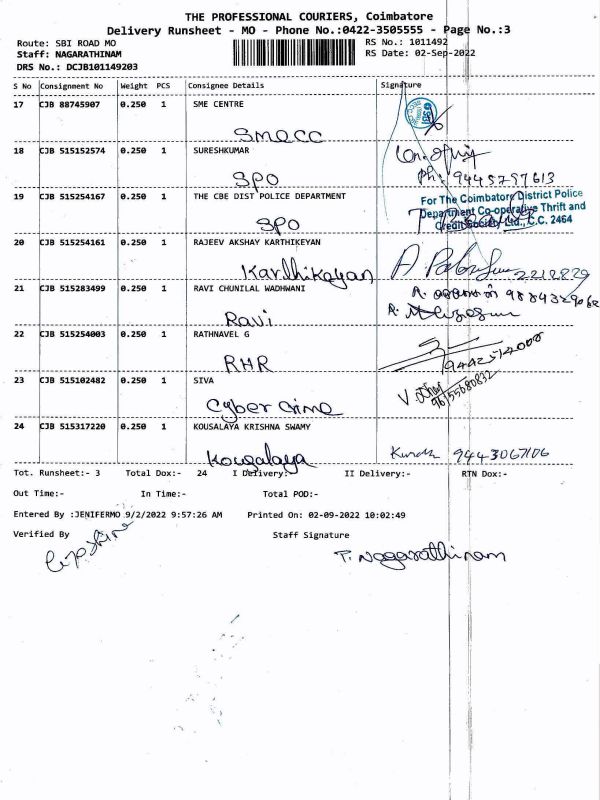 THE PROFESSIONAL COURIERS, Coimbatore
Delivery Runsheet - MO - Phone No.:0422-3505555 - Page No.:3
Route: SBI ROAD MO
RS No.: 1011492
Staff: NAGARATHINAM
RS Date: 02-Sep-2022
DRS No.: DCJB101149203
S No Consignment No Weight PCS Consignee Details Signature
17 CJB 88745907 0.250 1 SME CENTRE
SMECC
18 CJB 515152574 0.250 1 SURESHKUMAR
SPO
Ph: 9445797613
19 CJB 515254167 0.250 1 THE CBE DIST POLICE DEPARTMENT
SPO
For The Coimbatore District Police
Department Co-operative Thrift and
Credit Society Ltd., C.C. 2464
20 CJB 515254161 0.250 1 RAJEEV AKSHAY KARTHIKEYAN
Karthikeyan
21 CJB 515283499 0.250 1 RAVI CHUNILAL WADHWANI
Ravi
22 CJB 515254003 0.250 1 RATHNAVEL G
RHR
23 CJB 515102482 0.250 1 SIVA
Cyber Crime
24 CJB 515317220 0.250 1 KOUSALAYA KRISHNA SWAMY
Kousalaya
9443067106
Tot. Runsheet:- 3 Total Dox:- 24 I Delivery:- II Delivery:- RTN Dox:-
Out Time:- In Time:- Total POD:-
Entered By :JENIFERMO 9/2/2022 9:57:26 AM Printed On: 02-09-2022 10:02:49
Verified By Staff Signature
T. Nagarathinam